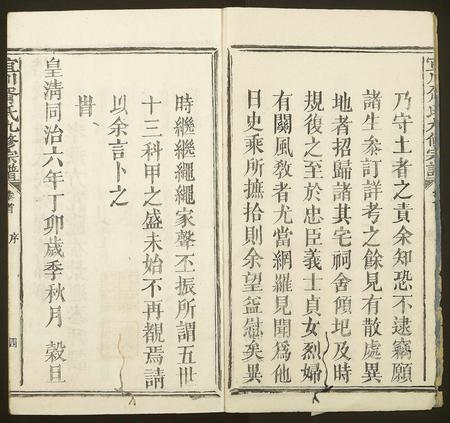 乃守土者之責余知恐不逮竊願
諸生參訂詳考之餘見有散處異
地者招歸諸其宅祠舍傾圮及時
規復之至於忠臣義士貞女烈婦
有關風敎者尤當網羅見聞爲他
日史乘所摭拾則余望益慰矣異
時繼繼繩繩家聲丕振所謂五世
十三科甲之盛未始不再覩焉請
以余言卜之
旹
皇淸同治六年丁卯歲季秋月 穀旦
宜川胥氏九修宗譜 卷首 序 四